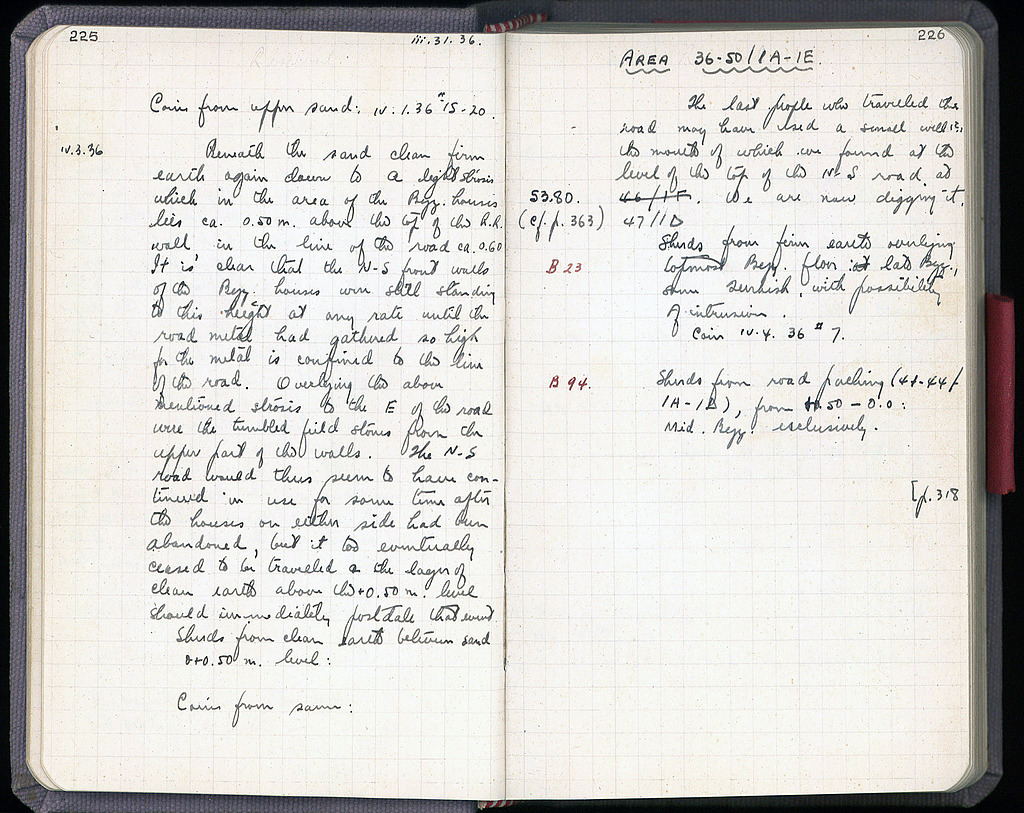 225
iii.31.36.
Coins from upper sand: iv.1.36 # 15-20.
iv.3.36
Beneath the sand clean firm
earth again down to a light strosis
which in the area of the Byz. houses
lies ca. 0.50 m. above the top of the R.R.
wall in the line of the road ca. 0.60
It is clear that the N-S front walls
of the Byz. houses were still standing
to this height at any rate until the
road metal had gathered so high
for the metal is confined to the line
of the road. Overlying the above
mentioned strosis to the E of the road
were the tumbled field stones from the
upper part of the walls. The N-S
road would thus seem to have con-
tinued in use for some time after
the houses on either side had been
abandoned, but it too eventually
ceased to be travelled & the layer of
clean earth above the +0.50 m. level
should immediately postdate that event
Sherds from clean earth between sand
& +0.50 m. level:
Coins from same:
226
AREA 36-50/1A-1E.
The last people who traveled the
road may have used a small well
the mouth of which we found at the
level of the top of the N-S road at
53.80. 46/1F. We are now digging it.
(cf. p. 363) 47/1D
Sherds from firm earth overlying
B 23 topmost Byz. floor: late Byz.,
some Turkish, with possibility
of intrusion.
Coin iv.4.36 # 7.
B 94. Sherds from road packing (41-44/
1A-1D), from +0.50-0.0:
Mid. Byz. exclusively.
[p. 318